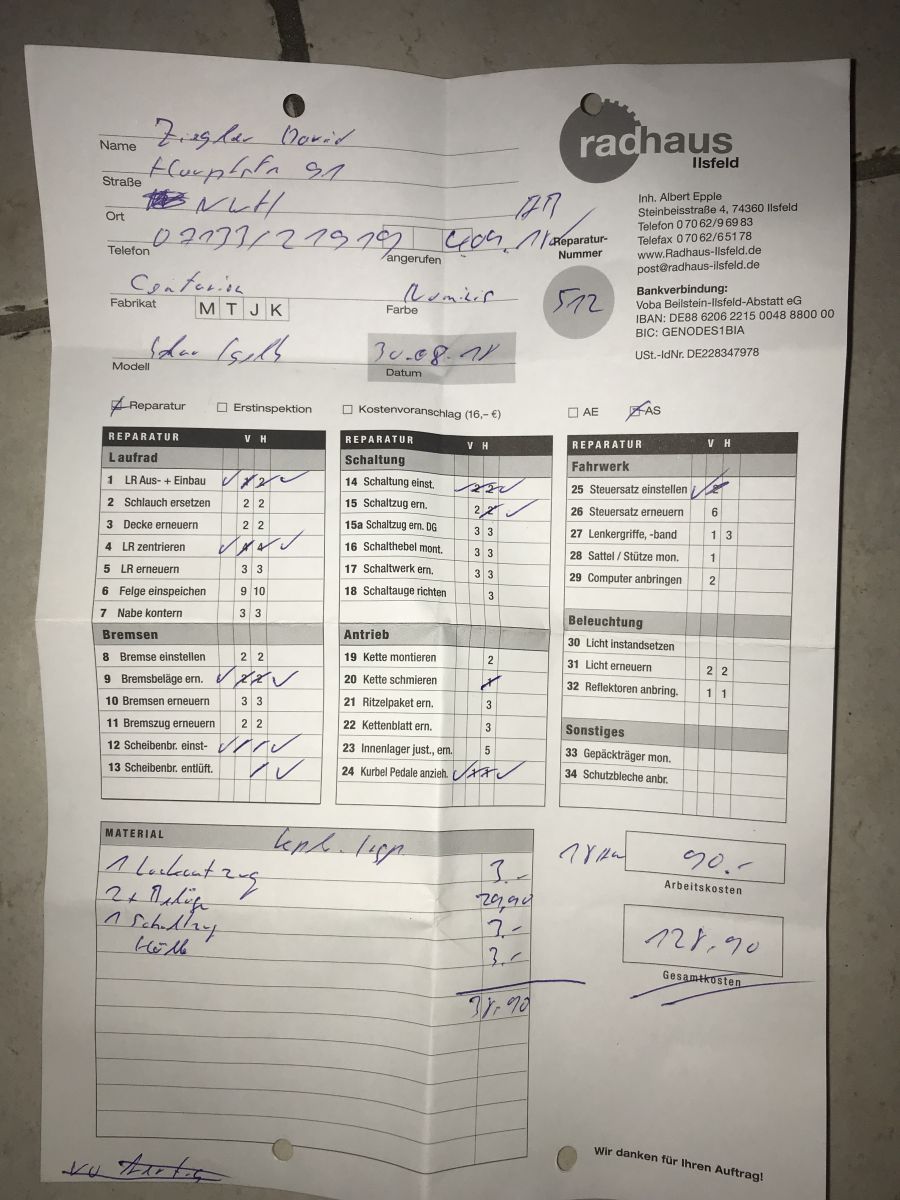 radhaus
Ilsfeld
Inh. Albert Epple
Steinbeisstraße 4, 74360 Ilsfeld
Telefon 0 70 62/9 69 83
Telefax 0 70 62/6 51 78
www.Radhaus-Ilsfeld.de
post@radhaus-ilsfeld.de
Bankverbindung:
Voba Beilstein-Ilsfeld-Abstatt eG
IBAN: DE88 6206 2215 0048 8800 00
BIC: GENODES1BIA
USt.-IdNr. DE228347978
Name Ziegler David
Straße 91
Ort NWH
Telefon 07133/21919 angerufen
Reparatur-Nummer 512
Fabrikat Centurion M T J K Farbe
Modell Datum 30.08.18
Reparatur Erstinspektion Kostenvoranschlag (16,– €) AE AS
REPARATUR V H
Laufrad
1 LR Aus- + Einbau 2
2 Schlauch ersetzen 2 2
3 Decke erneuern 2 2
4 LR zentrieren 4 4
5 LR erneuern 3 3
6 Felge einspeichen 9 10
7 Nabe kontern 3 3
Bremsen
8 Bremse einstellen 2 2
9 Bremsbeläge ern. 2 2
10 Bremsen erneuern 3 3
11 Bremszug erneuern 2 2
12 Scheibenbr. einst-
13 Scheibenbr. entlüft.
REPARATUR V H
Schaltung
14 Schaltung einst. 2 2
15 Schaltzug ern. 2 2
15a Schaltzug ern. DG 3 3
16 Schalthebel mont. 3 3
17 Schaltwerk ern. 3 3
18 Schaltauge richten 3
Antrieb
19 Kette montieren 2
20 Kette schmieren
21 Ritzelpaket ern. 3
22 Kettenblatt ern. 3
23 Innenlager just., ern. 5
24 Kurbel Pedale anzieh.
REPARATUR V H
Fahrwerk
25 Steuersatz einstellen 2
26 Steuersatz erneuern 6
27 Lenkergriffe, -band 1 3
28 Sattel / Stütze mon. 1
29 Computer anbringen 2
Beleuchtung
30 Licht instandsetzen
31 Licht erneuern 2 2
32 Reflektoren anbring. 1 1
Sonstiges
33 Gepäckträger mon.
34 Schutzbleche anbr.
MATERIAL
1 Lockout zug 3.-
2x Beläge 29,90
1 Schaltzug 3.-
Hülle 3.-
38,90
18 90.-
Arbeitskosten
128,90
Gesamtkosten
Wir danken für Ihren Auftrag!